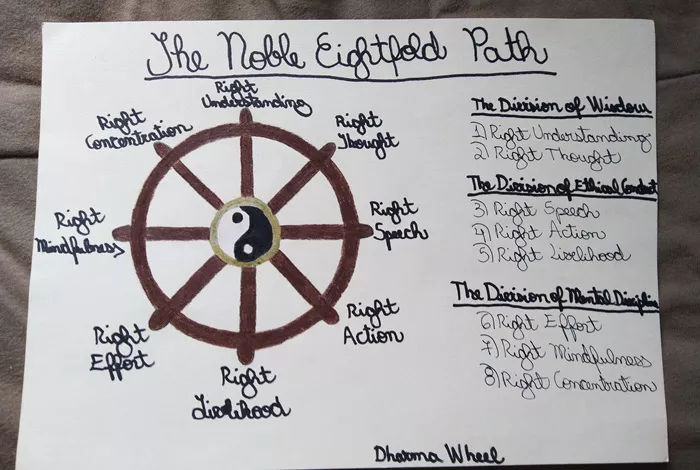 The Noble Eightfold Path
Right
Understanding
Right
Thought
Right
Speech
Right
Action
Right
Livelihood
Right
Effort
Right
Mindfulness
Right
Concentration
The Division of Wisdom
1) Right Understanding
2) Right Thought
The Division of Ethical Conduct
3) Right Speech
4) Right Action
5) Right Livelihood
The Division of Mental Discipline
6) Right Effort
7) Right Mindfulness
8) Right Concentration
Dharma Wheel